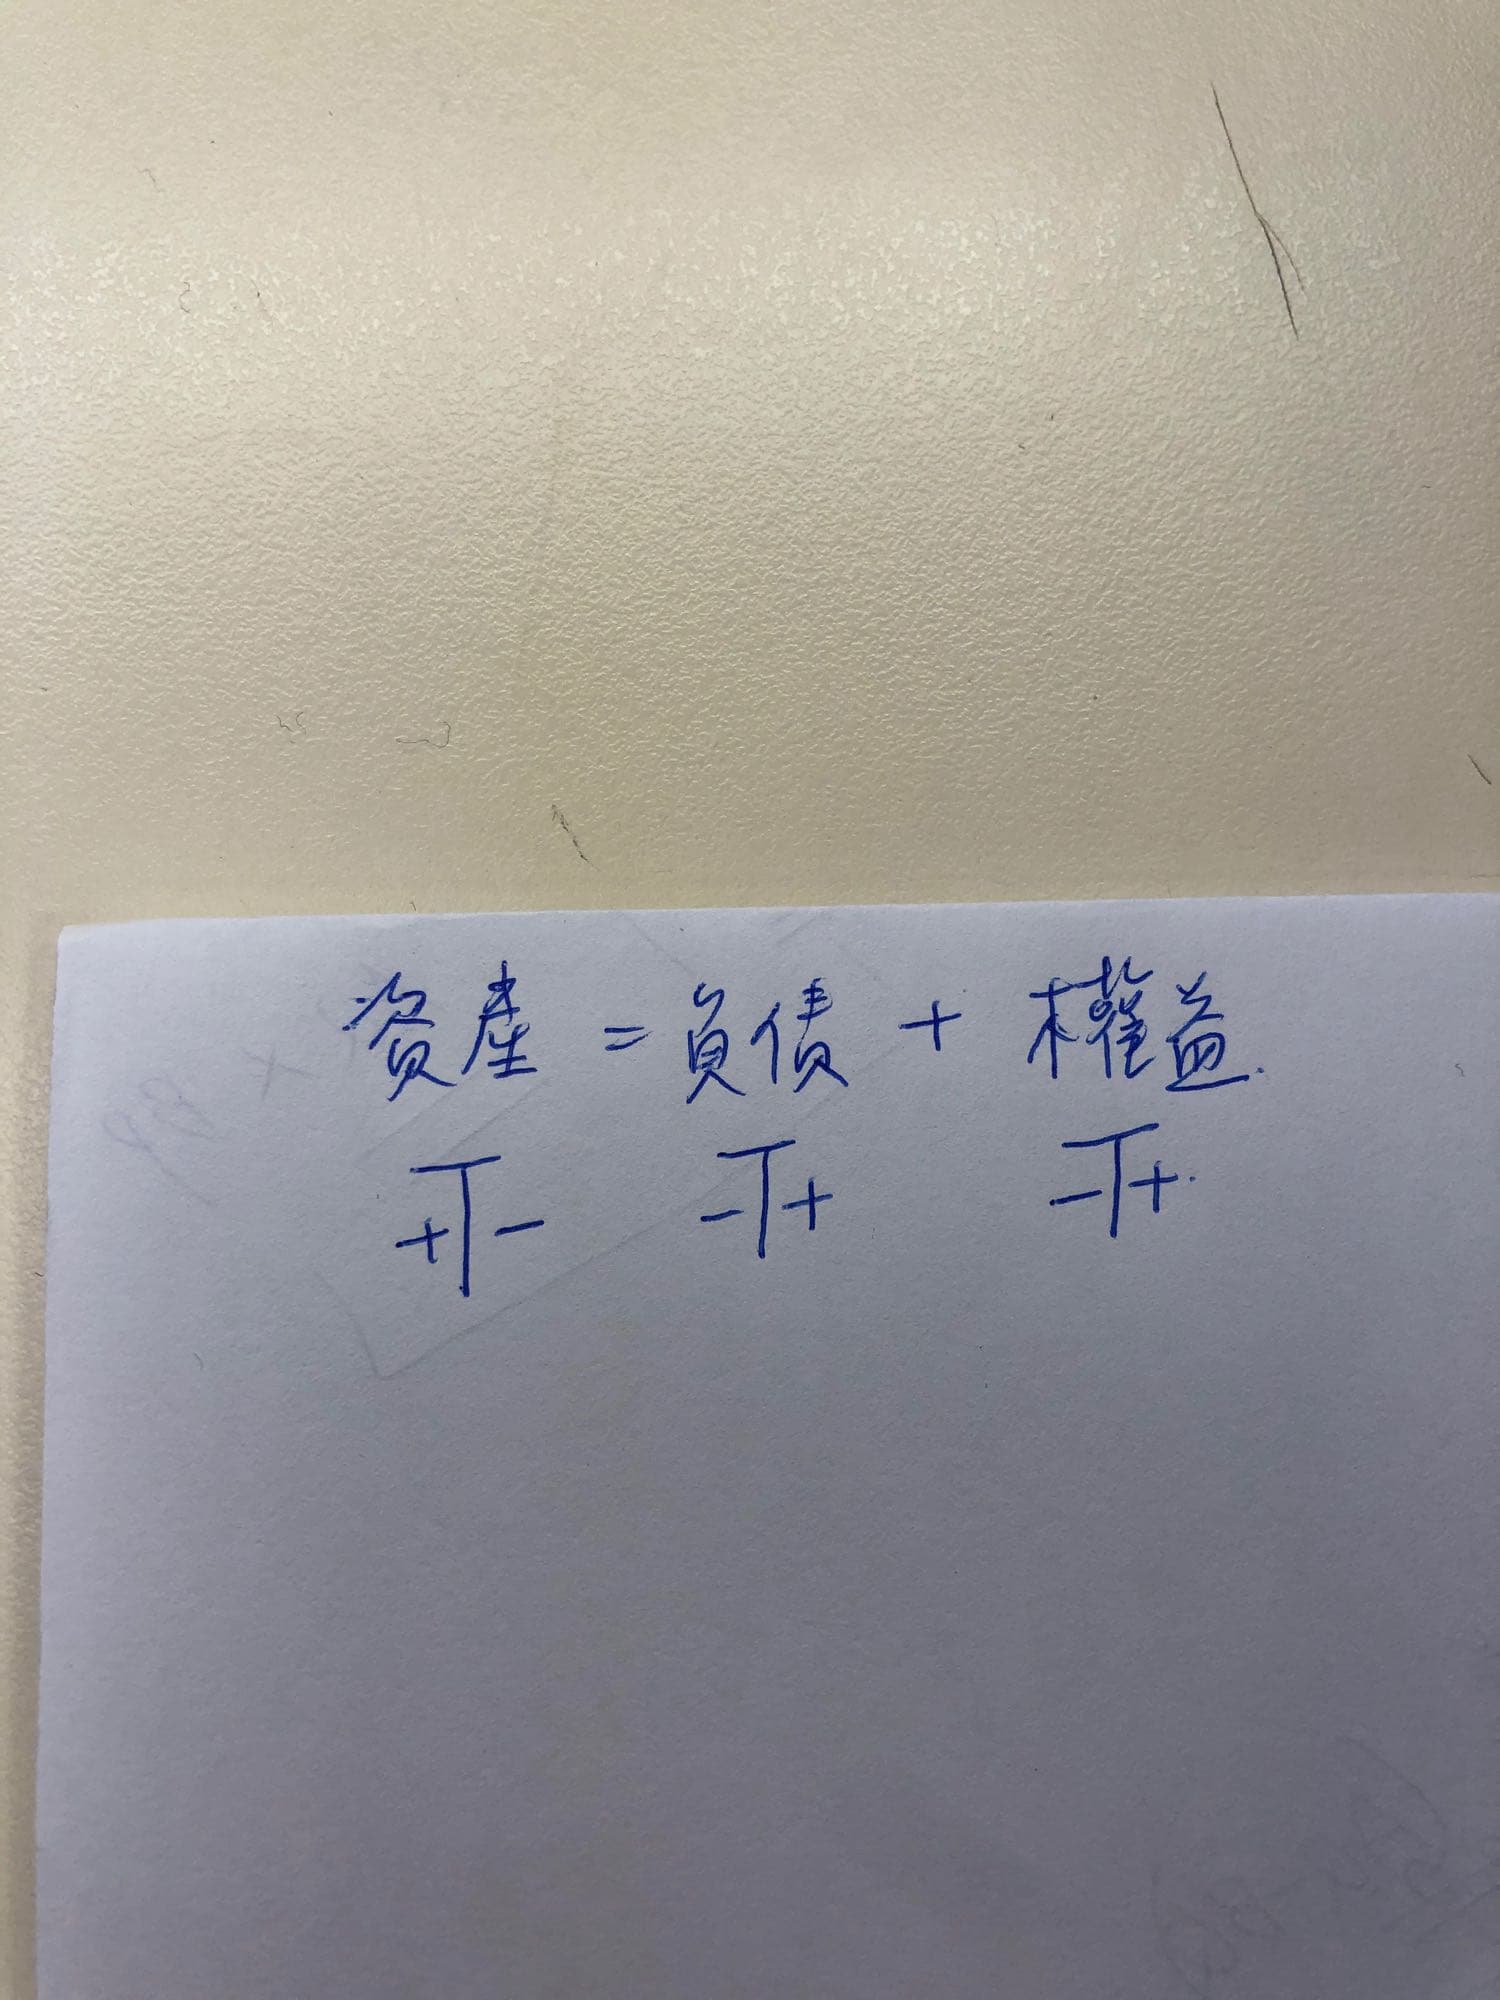 資產 = 負債 + 權益.
+ - - + - +.